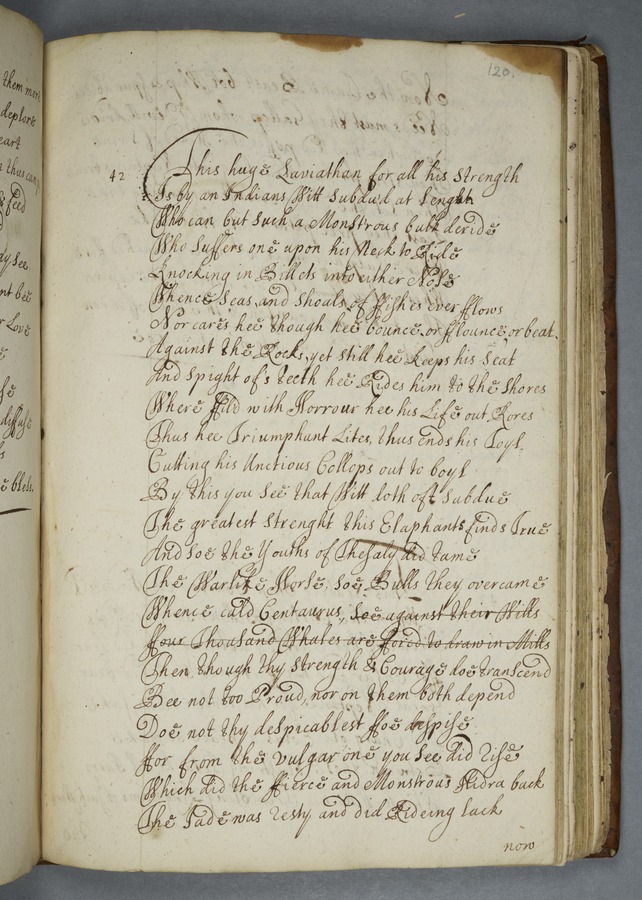 them mor
deplore
eart
thus can
feed
ay see
nt bee
r Love
diffuse
e bless.
120.
42
This huge Laviathan for all his Strength
Is by an Indians Witt Subdu'd at Lenght
Who can but Such a Monstrous bulk deride
Who Suffers one upon his Neck to Ride
Knocking in Billets into either Nose
Whence Seas, and Shoals of ffishes ever fflows
Nor cares hee though hee bounce, or fflounce, or beat
Against the Rocks, yet still hee keeps his Seat
And Spight of's teeth hee Rides him to the Shores
Where ffild with Horrour hee his Life out Rores
Thus hee Triumphant Lites, thus ends his Toyl,
Cutting his Unctious Collops out to boyl
By this you See that Witt doth oft Subdue
The greatest Strenght this Elaphants finds True
And Soe the Youths of Thesaly did tame
The Warlike Horse, Soe Bulls they overcame
Whence calld Centaurus, Soe against their Wills
ffour Thousand Whales are fforc'd to draw in Mills
Then though thy Strength & Courage doe transcend
Bee not too Proud, nor on them both depend
Doe not thy despicablest ffoe despise
ffor from the vulgar one you See did rise
Which did the ffierce and Monstrous Hidra back
The Jade was resty and did Rideing lack
now